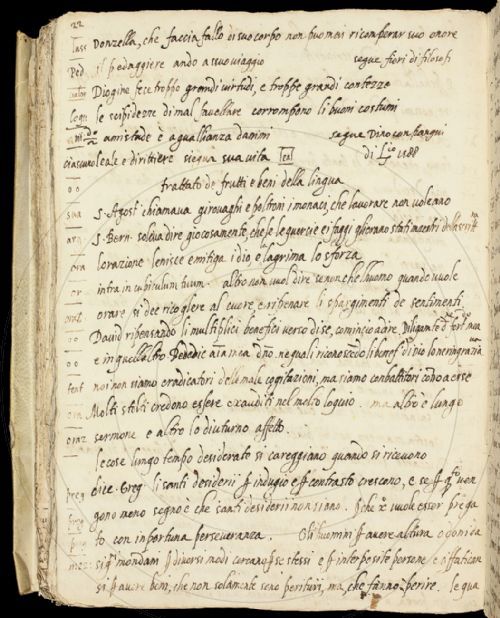 22
Donzella, che faccia fallo di suo corpo non puo mai ricomperar suo onore
Ped il pedaggiere andò a suo viaggio segue fiori di filosofi
Diogine fece troppo grandi virtudi, e troppe grandi contezze
le scipidezze di mal favellare corrompono li buoni costumi
amistade è agualianza d'animi segue Dino compagni
ciascuno leale e dirittiere siegua sua vita leal di L 1188
trattato de frutti e beni della lingua
S. Agost chiamava girovaghi e poltroni i monaci, che lavorare non voleano
S. Bern. soleva dire giocosamente, che le quercie e i faggi gli erano stati maestri della scritt
ora lorazione lenisce e mitiga idio, e la lagrima lo sforza
or intra in cubiculum tuum. altro non vuol dire se non che lhuomo quando vuole
orat orare si dee ricogliere al cuore e ripensare li spargimenti de sentimenti
David ripensando li multiplici benefici verso di se, cominciò a dire, Diligam te
e in quell'altro Benedic anima mea dno. ne quali riconoscendo li benef. di dio lo ne ringrazia
tent noi non siamo eradicatori delle male cogitazioni, ma siamo combattitori
ora Molti stolti credono essere exauditi nel molto loquio. ma altro è lungo
oraz sermone e altro lo diuturno affetto.
le cose lungo tempo desiderate si careggiano quando si ricevono
preg dice Greg. li santi desiderii indugio e contrasto crescono, e se
preg gono meno segno è che santi desiderii non siano. che vuole esser prega
preg to con inportuna perseveranza. Gli huomini avere altura o gonida
mondani diversi modi cercano se stessi e interposite persone e saffatican
si avere beni, che non solamente sono perituri, ma, che fanno perire. le qua